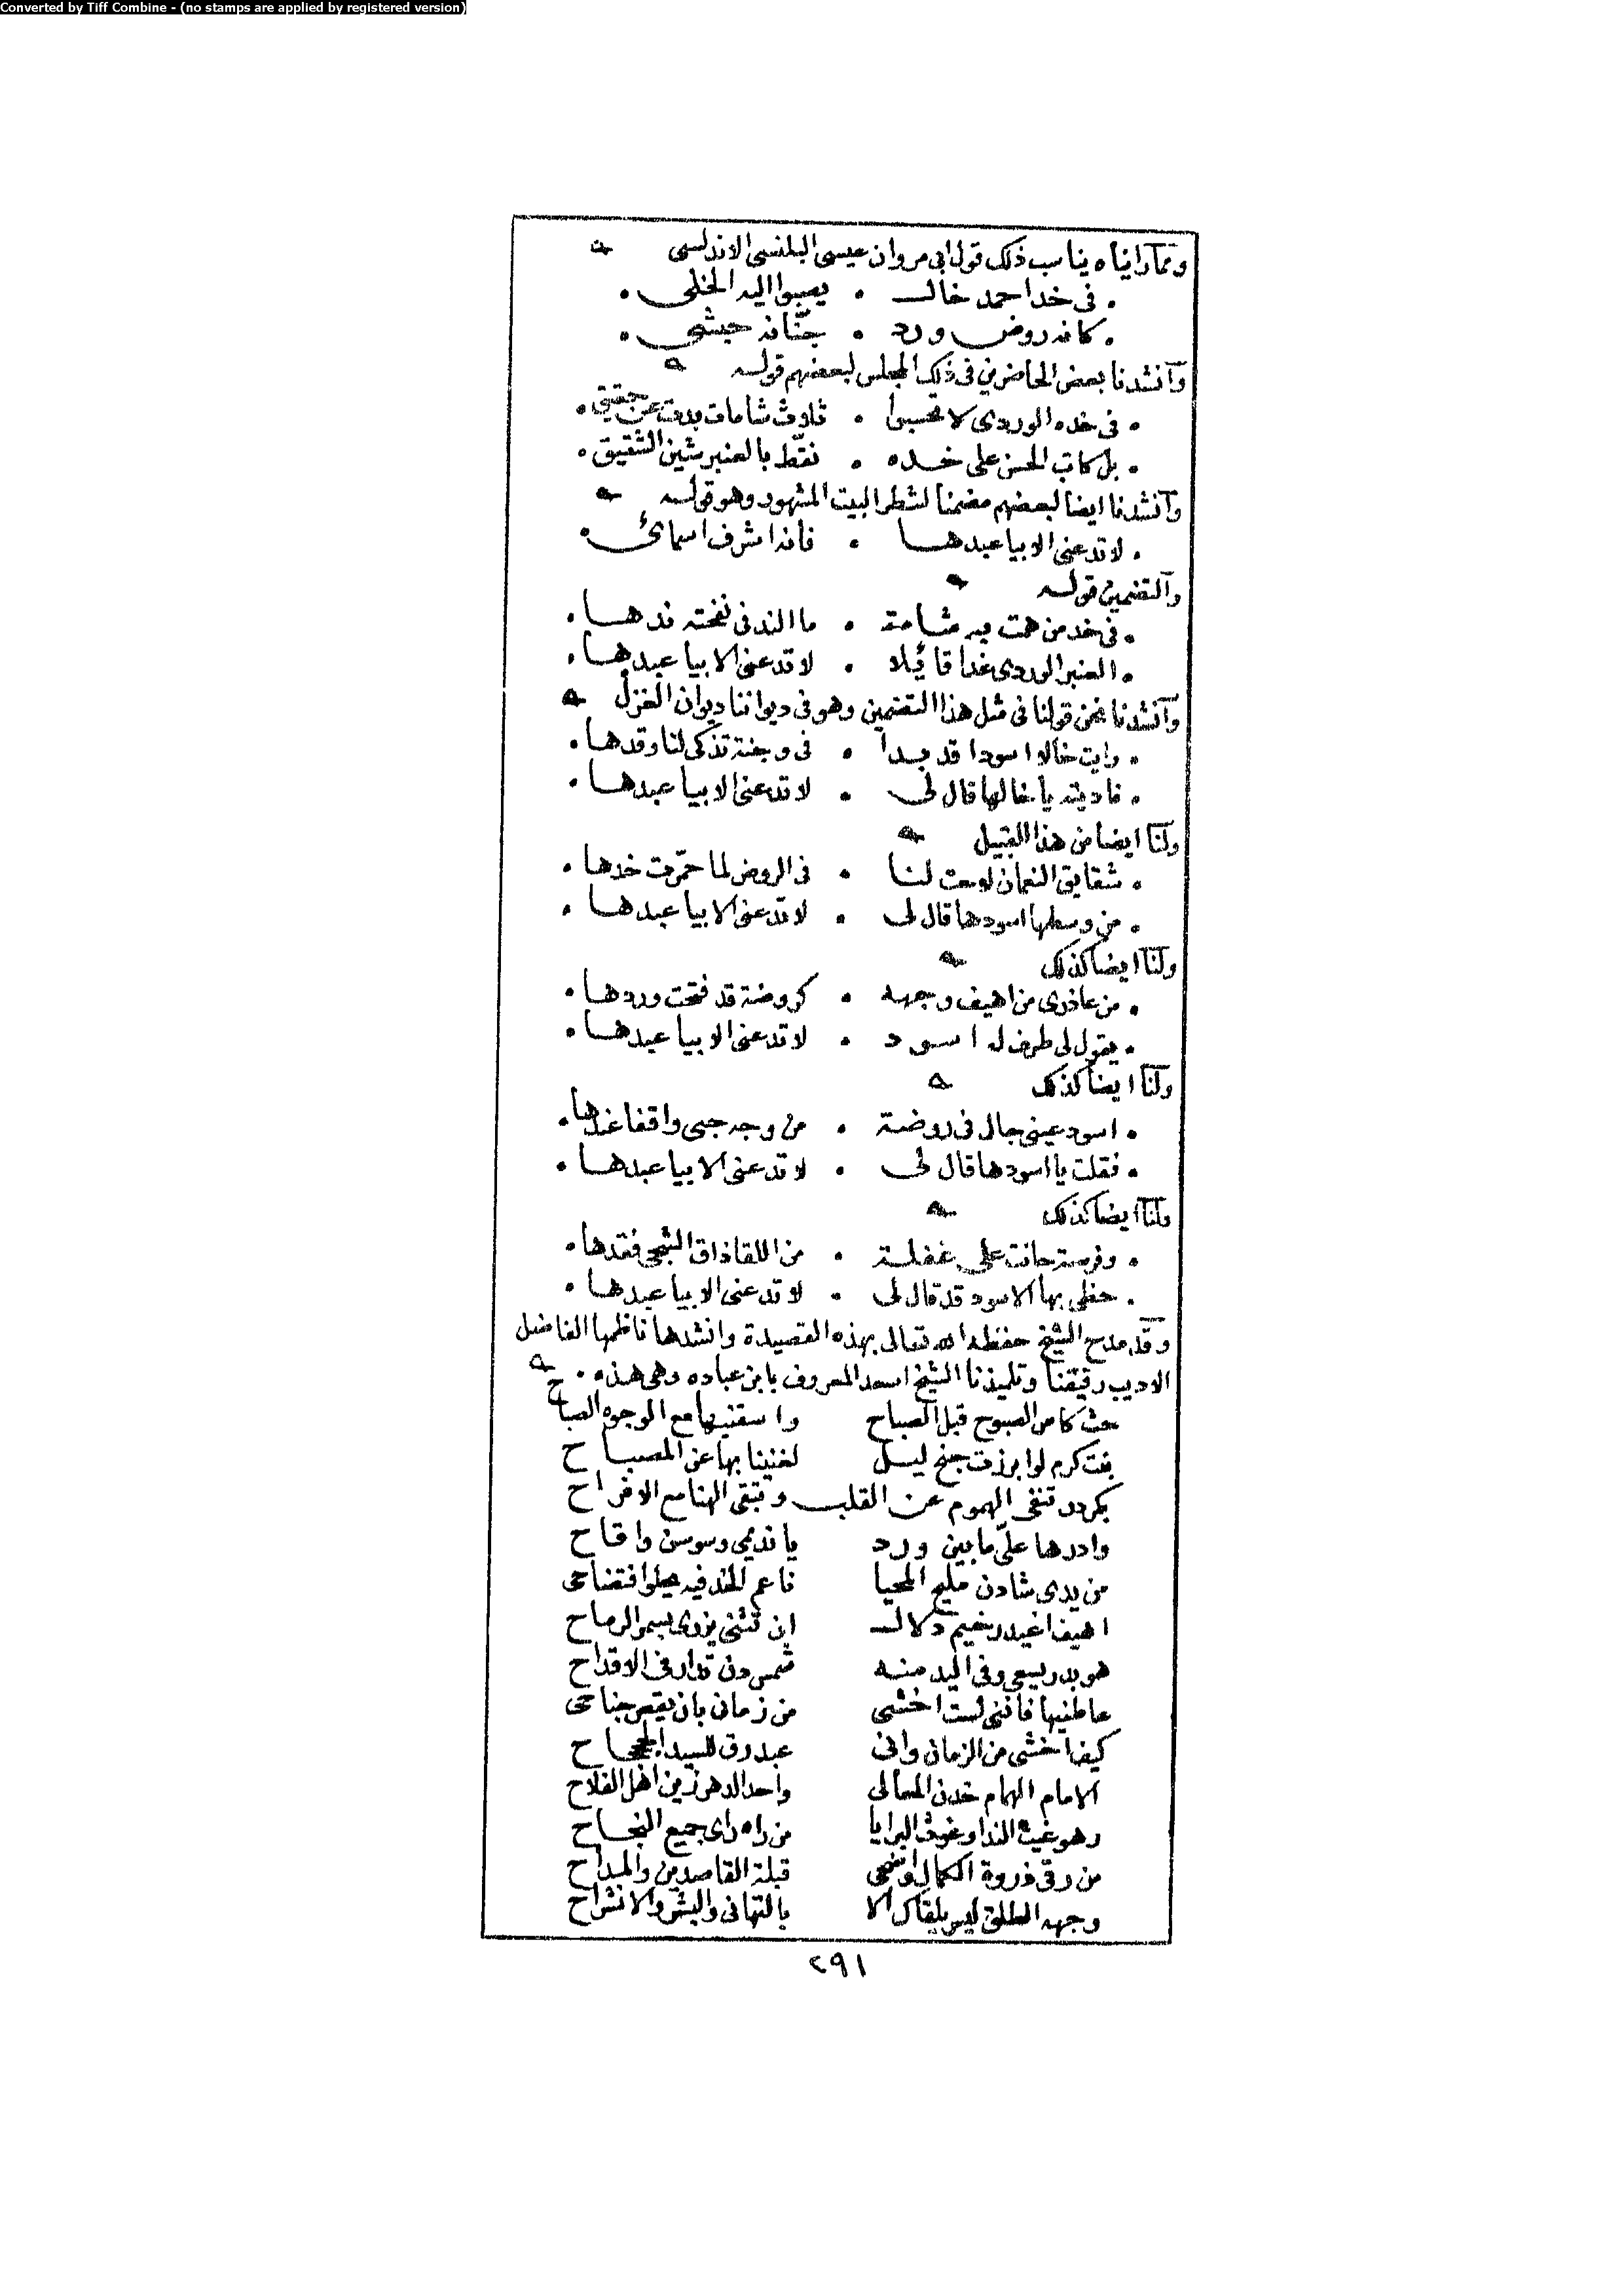 Converted by Tiff Combine - (no stamps are applied by registered version)
ومما رايناه يناسب ذلك قول ابي مروان عيسى البلنسي الاندلسي
في خد احمد خال • يصبوا اليه الخلي
كانه روض ورد • جنّانه حبشي
وانشدنا بعض الحاضرين في ذلك المجلس لبعضهم قوله
في خده الوردي لا تحسبوا • ثلاث شامات بدت عن حقيق
بل كاتب الحسن على خده • نقّط بالعنبر شين الشقيق
وانشدنا ايضا لبعضهم مضمنا لشطر البيت المشهور وهو قوله
لا تدعني الا بيا عبدها • فانه اشرف اسمائي
والتضمين قوله
في خد من همت به شامة • ما الند في نفحته ندها
العنبر الوردي غدا قائلا • لا تدعني الا بيا عبدها
وانشدنا نحن قولنا في مثل هذا التضمين وهو في ديواننا ديوان الغزل
رايت خالا اسودا قد بدا • في وجنة تذكي لنا وقدها
ناديته يا خالها قال لي • لا تدعني الا بيا عبدها
ولنا ايضا من هذا القبيل
شقايق النعمان لاحت لنا • في الروض لما حمّرت خدها
من وسطها اسودها قال لي • لا تدعني الا بيا عبدها
ولنا ايضا كذلك
من عاذري من اهيف وجهه • كروضة قد فتحت وردها
يقول لي طرف له اسود • لا تدعني الا بيا عبدها
ولنا ايضا كذلك
اسود عيني جال في روضة • من وجه حبي واقفا عندها
فقلت يا اسودها قال لي • لا تدعني الا بيا عبدها
ولنا ايضا كذلك
وفرصة حانت على غفلة • من اللقا ذاق الشجي فقدها
حظي بها الاسود قد قال لي • لا تدعني الا بيا عبدها
وقد مدح الشيخ حفظه الله تعالى بهذه القصيدة وانشدها ناظمها الفاضل
الاديب رفيقنا وتلميذنا الشيخ اسعد المعروف بابن عباده وهي هذه
حث كاس الصبوح قبل الصباح واسقنيها مع الوجوه الصباح
بنت كرم لو ابرزت جنح ليل لغنينا بها عن المصباح
بكر دن تنفي الهموم عن القلب وتبقي الهنا مع الافراح
وادرها عليّ ما بين ورد يا نديمي وسوسن واقاح
من يدي شادن مليح المحيا ناعم الخد فيه يحلوا افتضاحي
اهيف اغيد رخيم دلال ان تثنى يزري بسمر الرماح
هو بدر يسعى وفي اليد منه شمس دن تدار في الاقداح
عاطنيها فانني لست اخشى من زماني بان يقص جناحي
كيف اخشى من الزمان واني عبد رق للسيد الجحجاح
الامام الهمام خدن المعالي واحد الدهر زين اهل الفلاح
وهو غيث الندا وغوث البرايا من راه راى جميع النجاح
من رقى ذروة الكمال واضحى قبلة القاصدين والمداح
وجهه الطلق ليس يلقاك الا بالتهاني والبشر والانشراح
٢٩١